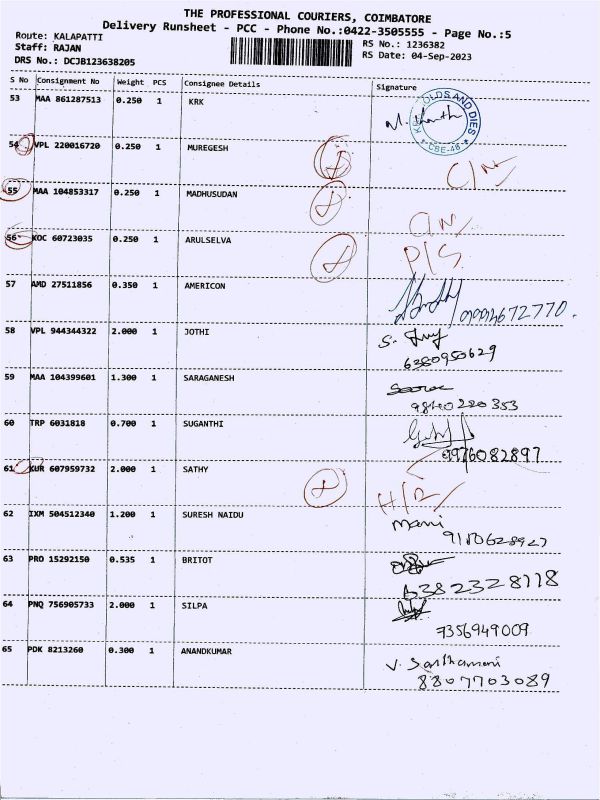 THE PROFESSIONAL COURIERS, COIMBATORE
Delivery Runsheet - PCC - Phone No.:0422-3505555 - Page No.:5
Route: KALAPATTI RS No.: 1236382
Staff: RAJAN RS Date: 04-Sep-2023
DRS No.: DCJB123638205
S No Consignment No Weight PCS Consignee Details Signature
53 MAA 861287513 0.250 1 KRK
OLDS AND DIES
CBE-46
54 VPL 220016720 0.250 1 MUREGESH
C/N
55 MAA 104853317 0.250 1 MADHUSUDAN
C/N
56 KOC 60723035 0.250 1 ARULSELVA
P/S
57 AMD 27511856 0.350 1 AMERICON
58 VPL 944344322 2.000 1 JOTHI
6380950629
59 MAA 104399601 1.300 1 SARAGANESH
9840220353
60 TRP 6031818 0.700 1 SUGANTHI
9976082897
61 KUR 607959732 2.000 1 SATHY
62 IXM 504512340 1.200 1 SURESH NAIDU
mani
9180628927
63 PRO 15292150 0.535 1 BRITOT
6382328118
64 PNQ 756905733 2.000 1 SILPA
7356949009
65 PDK 8213260 0.300 1 ANANDKUMAR
V. Santhamani
8807703089